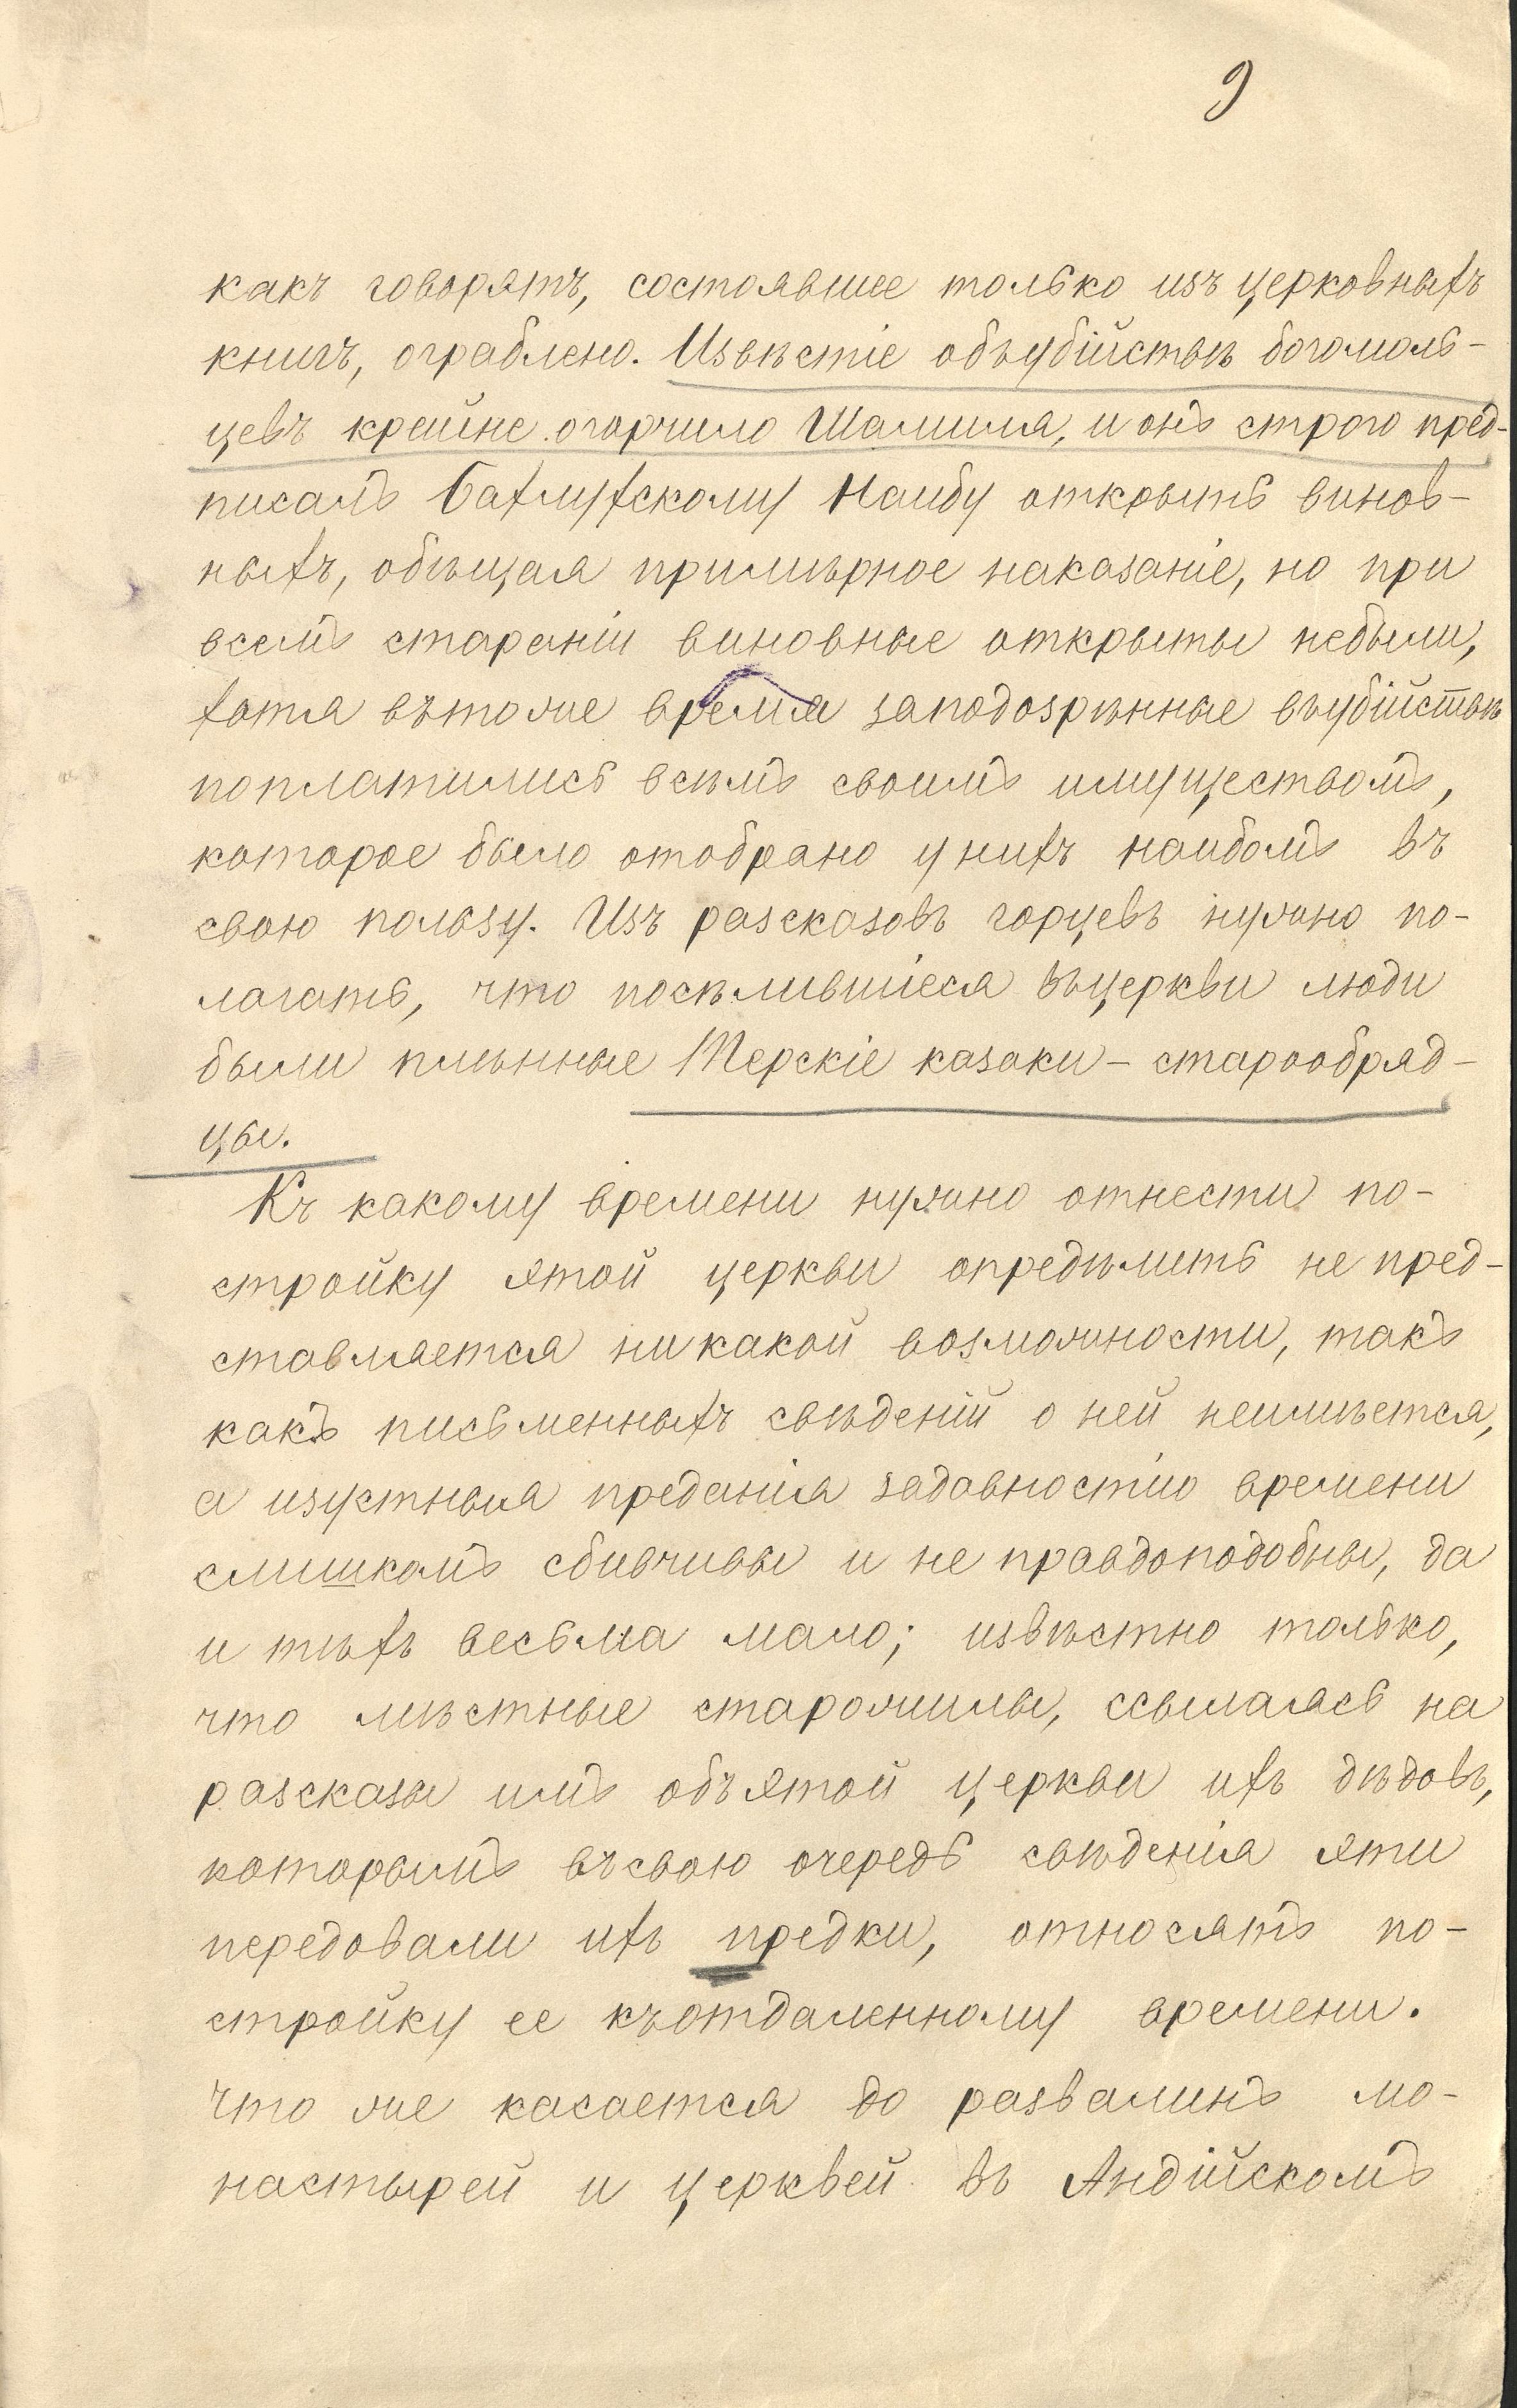 9
какъ говорятъ, состоявшее только изъ церковныхъ
книгъ, ограблено. Извѣстіе объубійствѣ богомоль-
цевъ крайне огорчило Шамиля, и онъ строго пред-
писалъ Бахлухскому Наибу открыть винов-
ныхъ, обѣщая примѣрное наказаніе, но при
всемъ стараніи виновные открыты небыли,
хотя вътоже время заподозрѣнные въубійствѣ
поплатились всѣмъ своимъ имуществомъ,
которое было отобрано унихъ наибомъ въ
свою пользу. Изъ разсказовъ горцевъ нужно по-
лагать, что поселившіеся въцеркви люди
были плѣнные Терскіе казаки – старообряд-
цы.
Къ какому времени нужно отнести по-
стройку этой церкви опредѣлить не пред-
ставляется никакой возможности, такъ
какъ письменныхъ свѣденій о ней неимѣется,
а изустныя преданія задавностію времени
слишкомъ сбивчивы и не правдоподобны, да
и тѣхъ весьма мало; извѣстно только,
что мѣстные старожилы, ссылаясь на
разсказы имъ объ этой церкви ихъ дѣдовъ,
которымъ въсвою очередь свѣденія эти
передовали ихъ предки, относятъ по-
стройку ее къотдаленному времени.
Что же касается до развалинъ мо-
настырей и церквей въ Андійскомъ